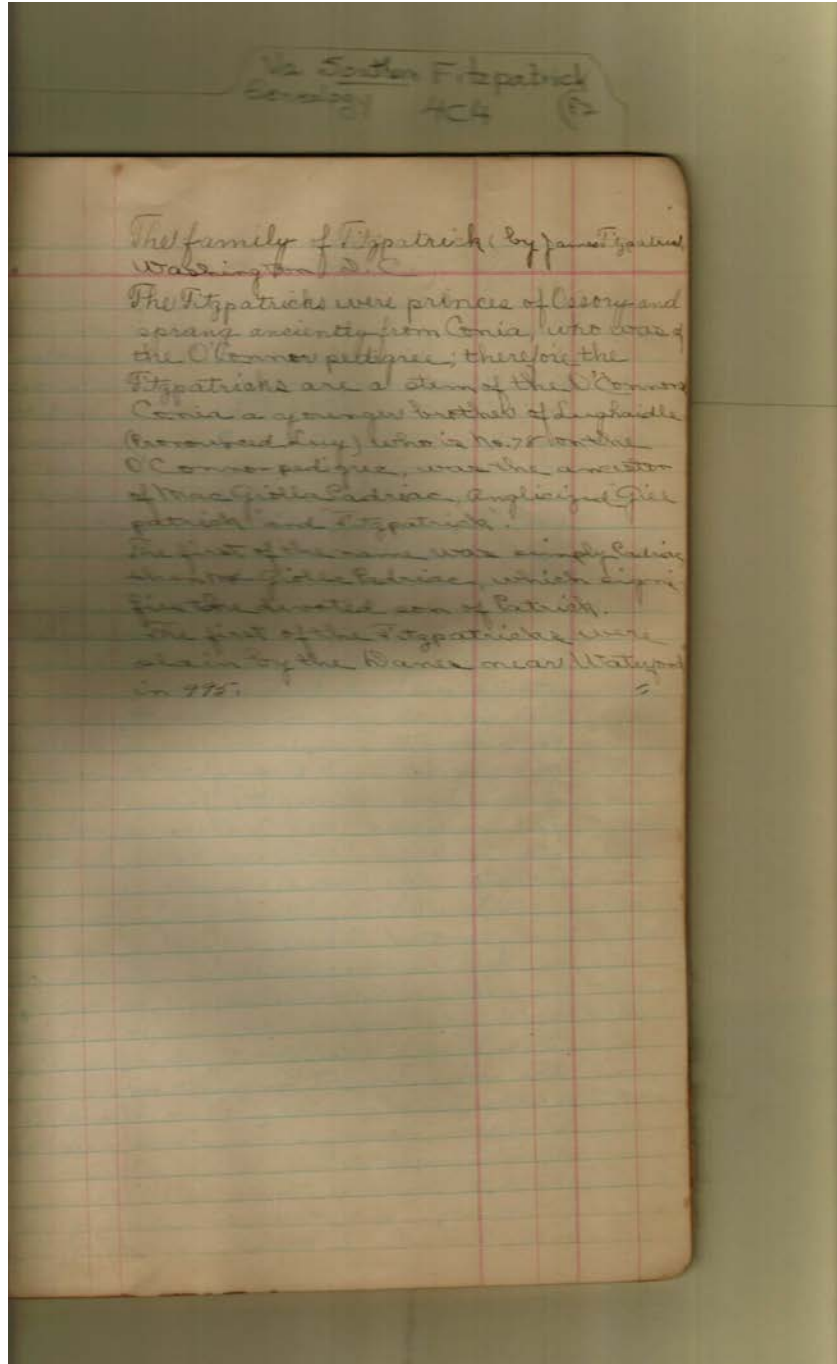 Va Southern Fitzpatrick
Genealogy 4C4
The family of Fitzpatrick (by James Fitzpatrick
Washington D.C.
The Fitzpatricks were princes of Ossory and
sprang anciently from Conia, who was of
the O'Connor pedigree; therefore the
Fitzpatricks are a stem of the O'Connors
Conia a younger brother of Lughaidle
(Pronounced Luy) who is No. 78 on the
O'Connor pedigree, was the ancestor
of Mac Giolla Padriac, Anglicized "Gill
patrick" and "Fitzpatrick".
The first of the name was simply Padriac
Giolla Padriac, which signi
fies the devoted son of Patrick.
The first of the Fitzpatricks were
slain by the Danes near Waterford
in 995. =